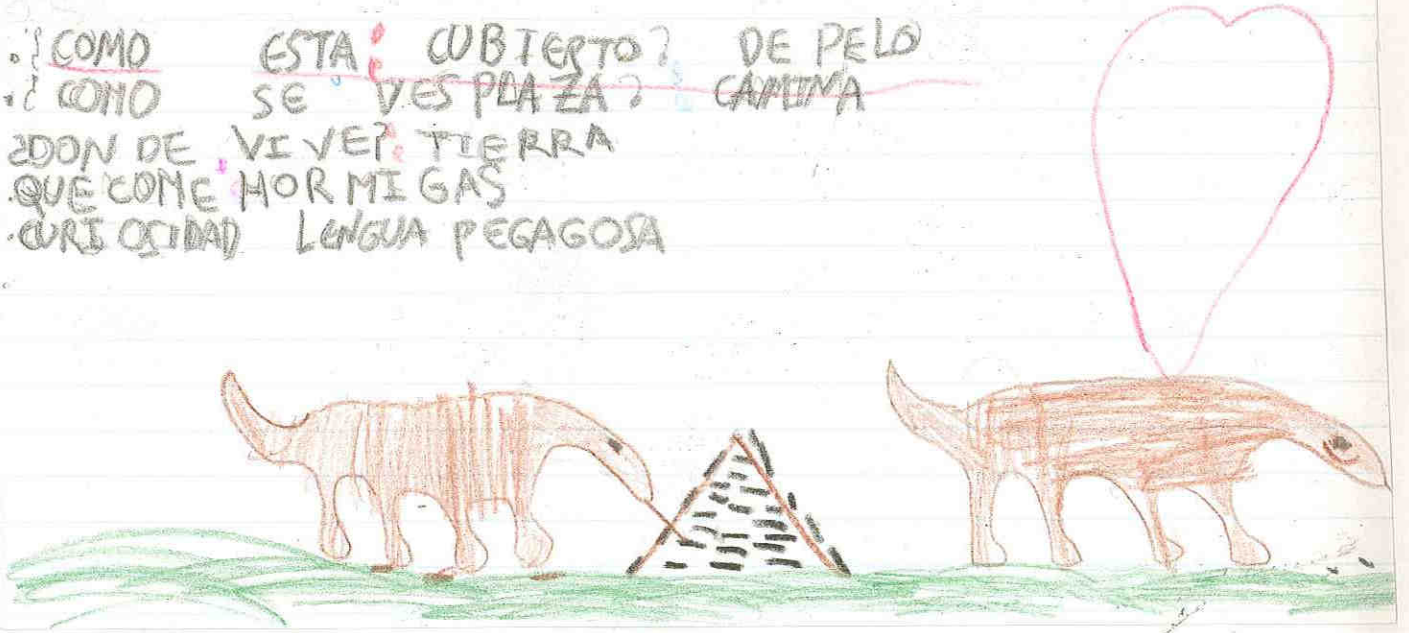 ¿COMO ESTA CUBIERTO? DE PELO
¿COMO SE DESPLAZA? CAMINA
¿DON DE VIVE? TIERRA
.QUE COME HORMIGAS
.CURIOSIDAD LENGUA PEGAGOSA